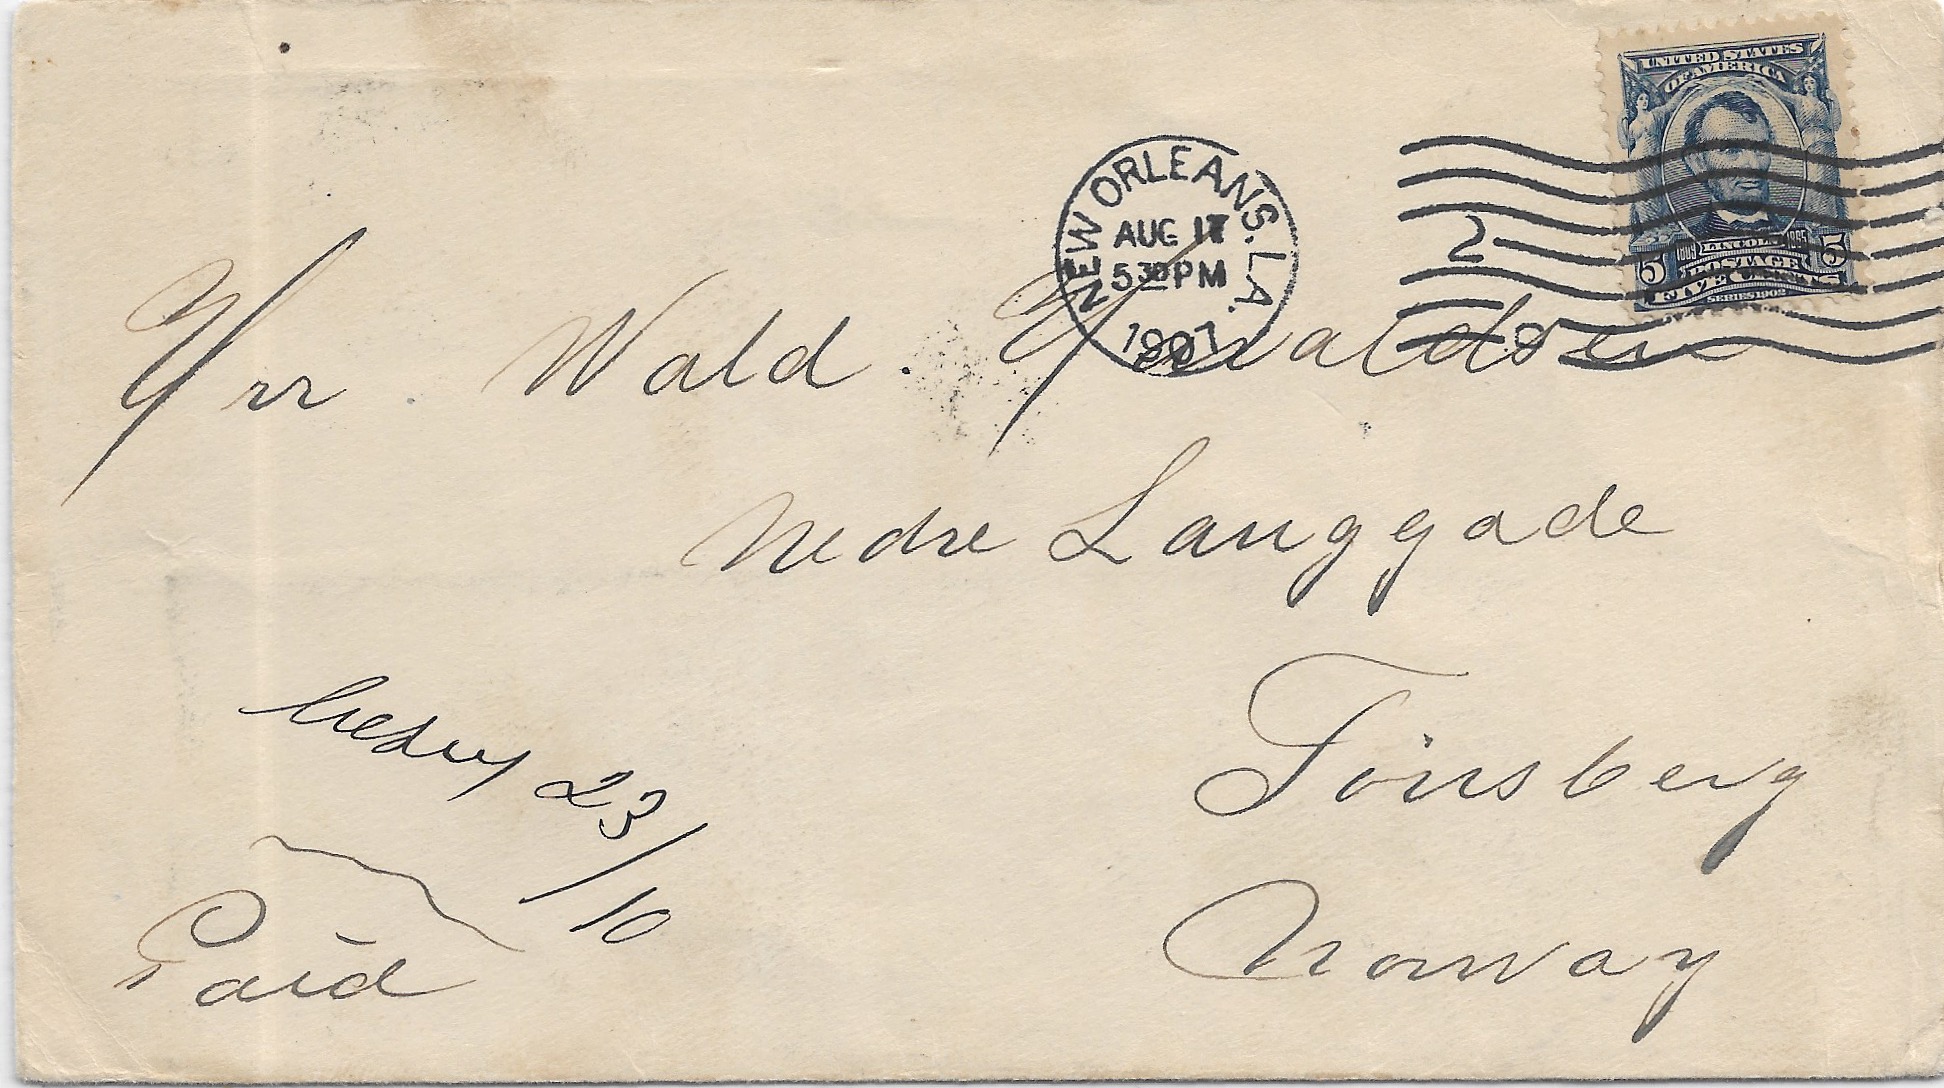 UNITED STATES
OF AMERICA
1809 LINCOLN 1865
5 POSTAGE 5
FIVE CENTS
SERIES 1902
NEW ORLEANS, LA.
AUG 17
5 30 PM
1907
2
Hrr Wald. Haraldsen
Nedre Langgade
Tönsberg
Norway
23/10
Paid